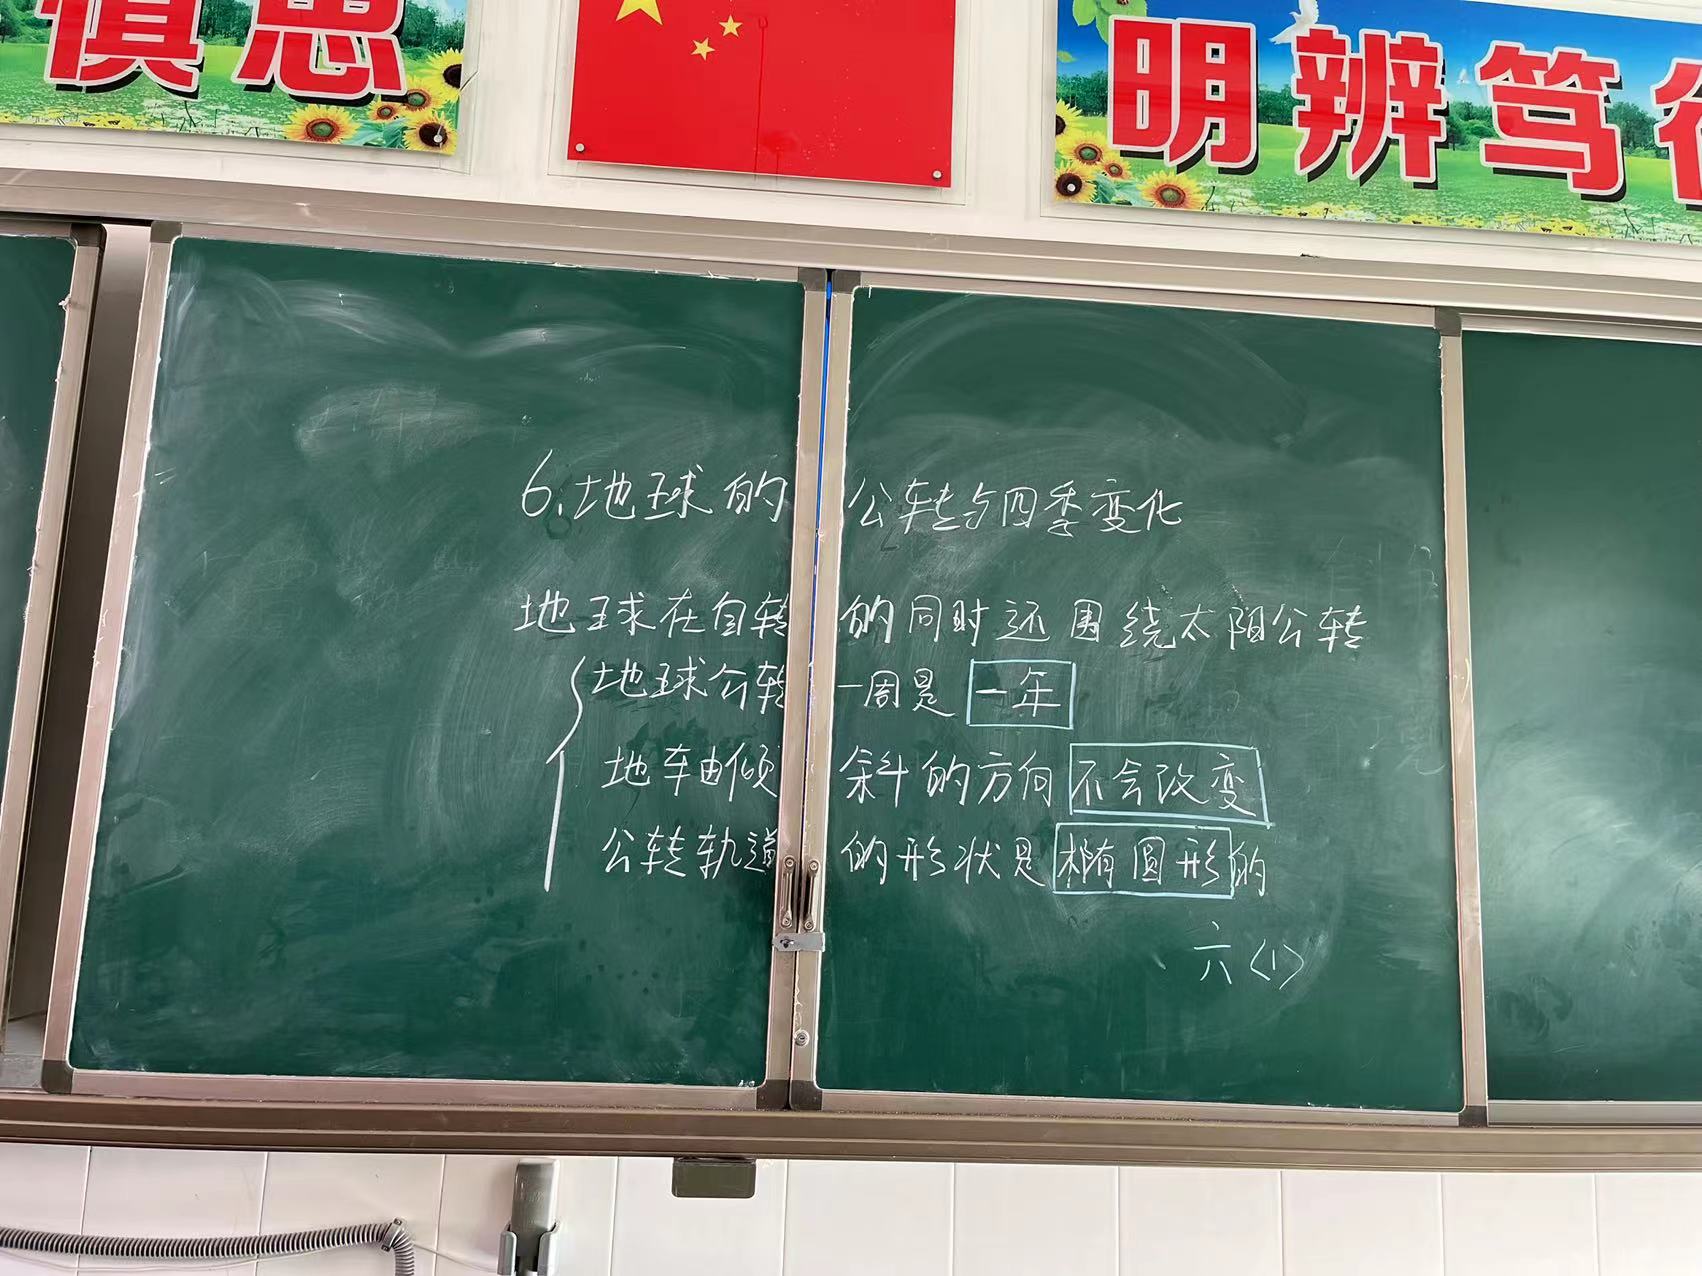 慎思
明辨笃行
6.地球的公转与四季变化
地球在自转的同时还围绕太阳公转
地球公转一周是一年
地车由倾斜的方向不会改变
公转轨道的形状是椭圆形的
六<1>